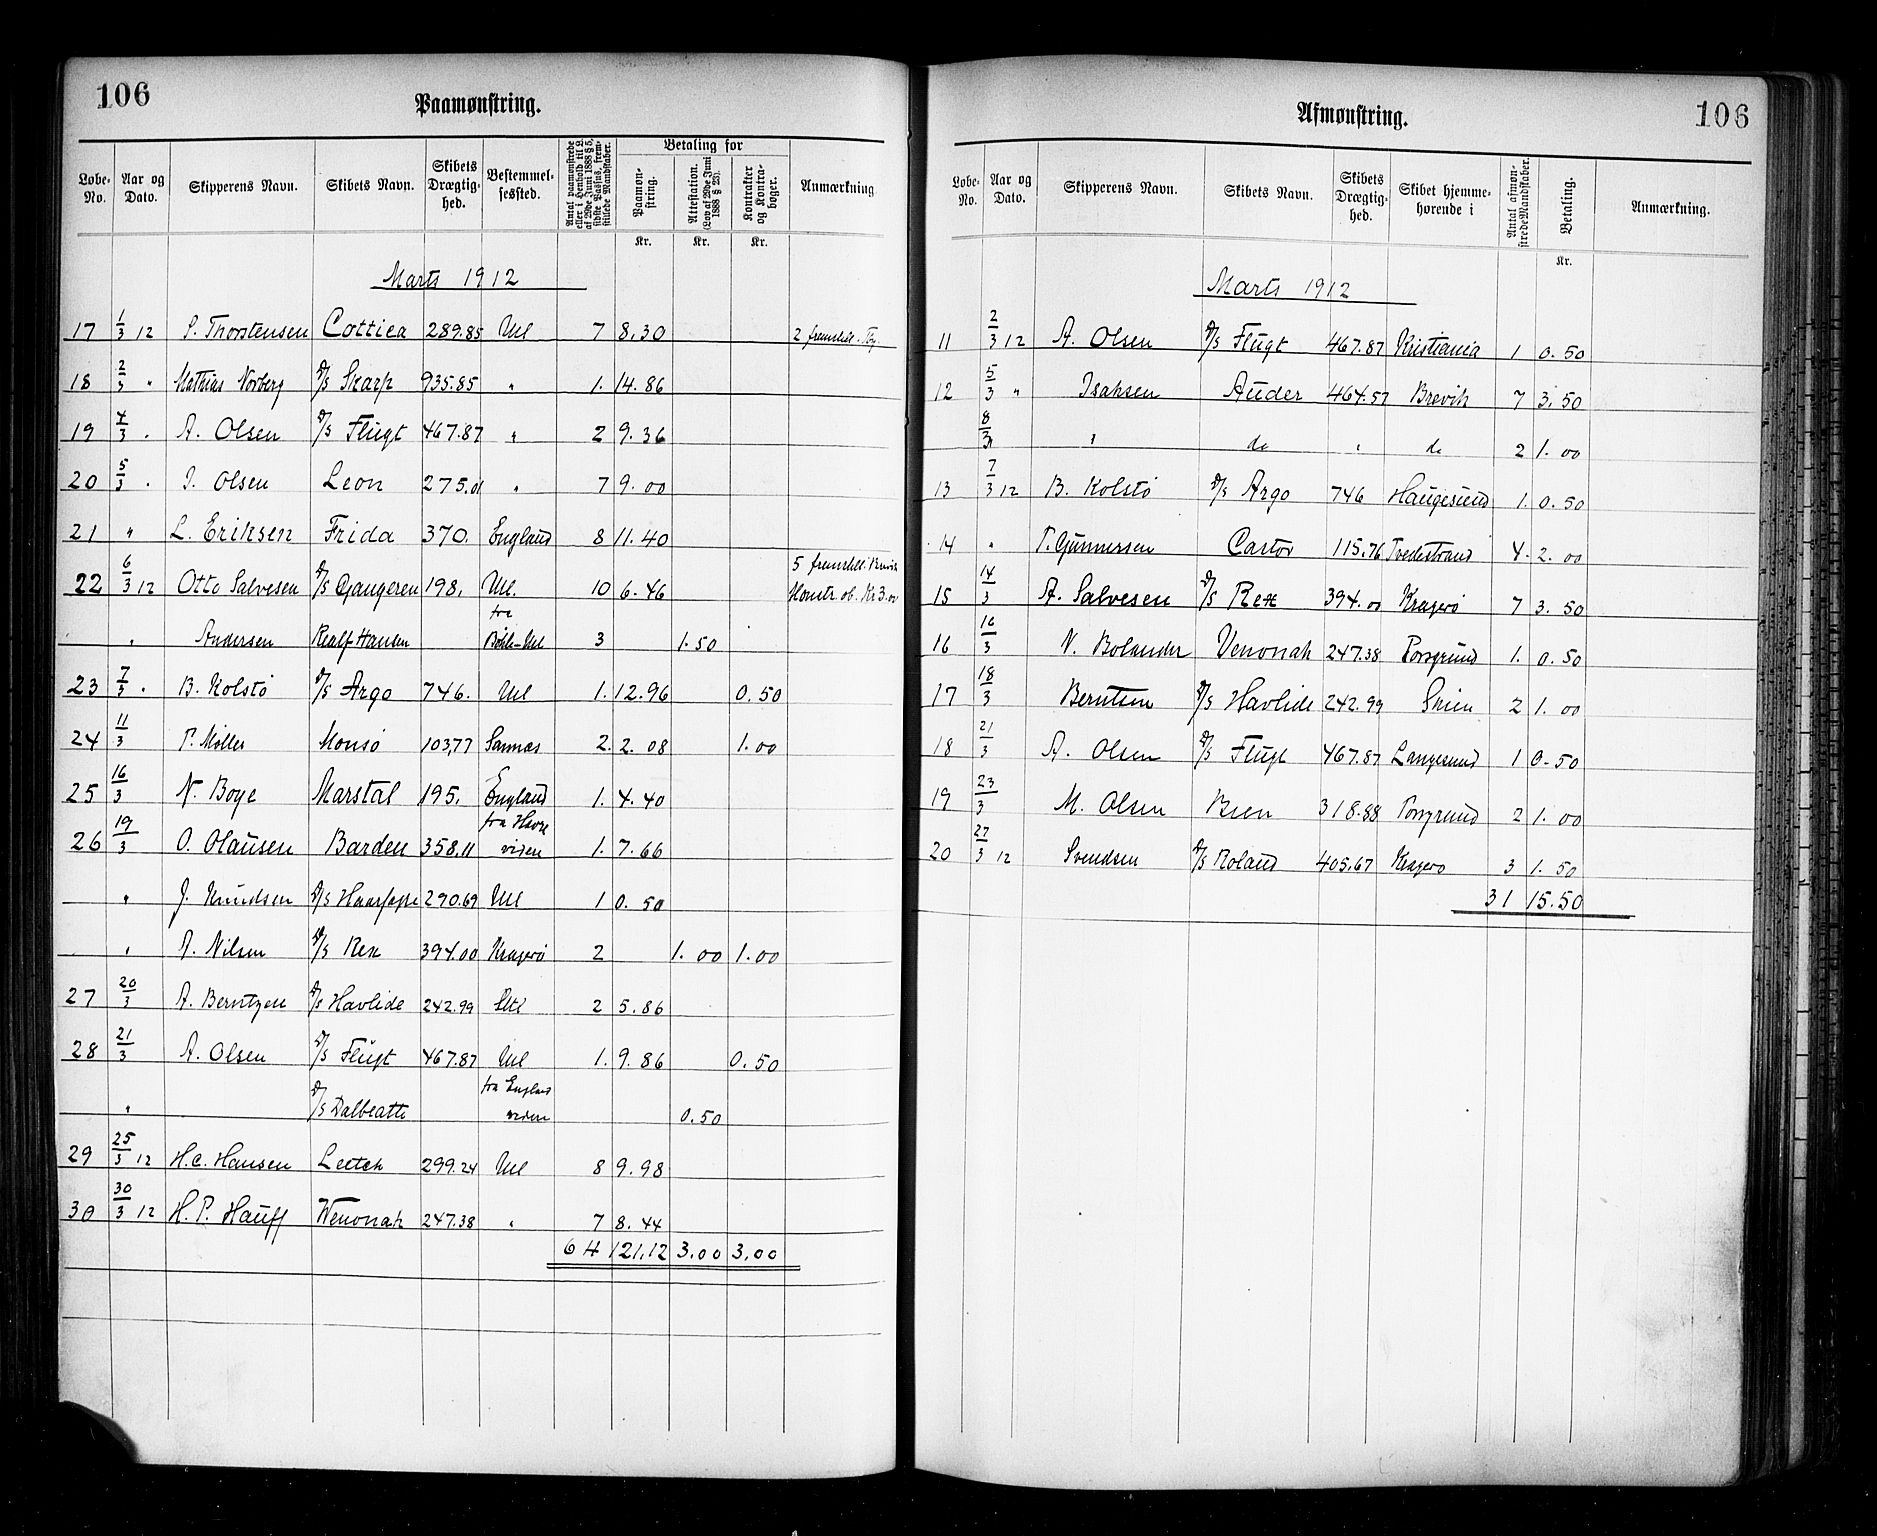 106
Paamønstring.
Løbe-No. Aar og Dato. Skipperens Navn. Skibets Navn. Skibets Drægtighed. Bestemmelsessted. Antal paamønstrede eller i Henhold til L. af 29de Juni 1888 § 5, sidste Passus, fremstillede Mandskaber. Betaling for Paamønstring. Attestation. (Lov af 29de Juni 1888 § 23). Kontrakter og Kontrabøger. Anmærkning
Kr. Kr. Kr.
Marts 1912
17 1/3 12 S. Thorstensen Cottica 289.85 Ull 7 8.30 2 fremstill.
18 2/3 " Mathias Norberg D/S Skarp 935.85 " 1. 14.86
19 4/3 . A. Olsen D/S Flugt 467.87 " 2 9.36
20 5/3 . J. Olsen Leon 275.01 " 7 9.00
21 " L. Eriksen Frida 370. England 8 11.40
5 fremstill.
22 6/3 12 Otto Salvesen D/S Gangeren 198. Ull. 10 6.46 Kr 3.00
fra
" Andersen Realf Hansen Ull 3 1.50
23 7/3 . B. Kolstø D/S Argo 746. Ull 1. 12.96 0.50
24 11/3 P. Møller Monsø 103,77 Sannæs 2. 2.08 1.00
25 16/3 N. Boye Marstal 195. England 1. 4.40
fra Havre
26 19/3 O. Olausen Barden 358.11 videre 1. 7.66
" J. Knudsen D/S 290.69 Ull 1 0.50
" A. Nilsen D/S Rex 394.00 Kragerø 2 1.00 1.00
27 20/3 A. Berntzen D/S Havlide 242.99 2 5.86
28 21/3 A. Olsen D/S Flugt 467.87 Ull 1. 9.86 0.50
fra England
" D/S Dalbeatte videre 0.50
29 25/3 12 H.C. Hansen Leetch 299.24 Ull 8 9.98
30 30/3 12 H. P. Hauff Wenonah 247.38 " 7 8.44
64 121.12 3.00 3.00
106
Afmønstring.
Løbe-No. Aar og Dato. Skipperens Navn. Skibets Navn. Skibets Drægtighed. Skibet hjemmehørende i Antal afmønstrede Mandskaber. Betaling. Anmærkning.
Kr.
Marts 1912
11 2/3 12 A. Olsen D/S Flugt 467.87 Kristiania 1 0.50
12 5/3 " Isaksen Auder 464.57 Brevik 7 3.50
8/3 " " do " do 2 1.00
13 7/3 12 B. Kolstø D/S Argo 746 Haugesund 1. 0.50
14 " T. Gunnersen Castor 115.76 Tvedestrand 4. 2.00
15 14/3 A. Salvesen D/S Rex 394.00 Kragerø 7 3.50
16 16/3 N. Bolander Venonah 247.38 Porsgrund 1. 0.50
17 18/3 Berntsen D/S Havlide 242.99 Skien 2 1.00
18 21/3 A. Olsen D/S Flugt 467.87 Langesund 1 0.50
19 23/3 M. Olsen Bien 318.88 Porsgrund 2 1.00
20 27/3 12 Svendsen D/S Roland 405.67 Kragerø 3 1.50
31 15.50